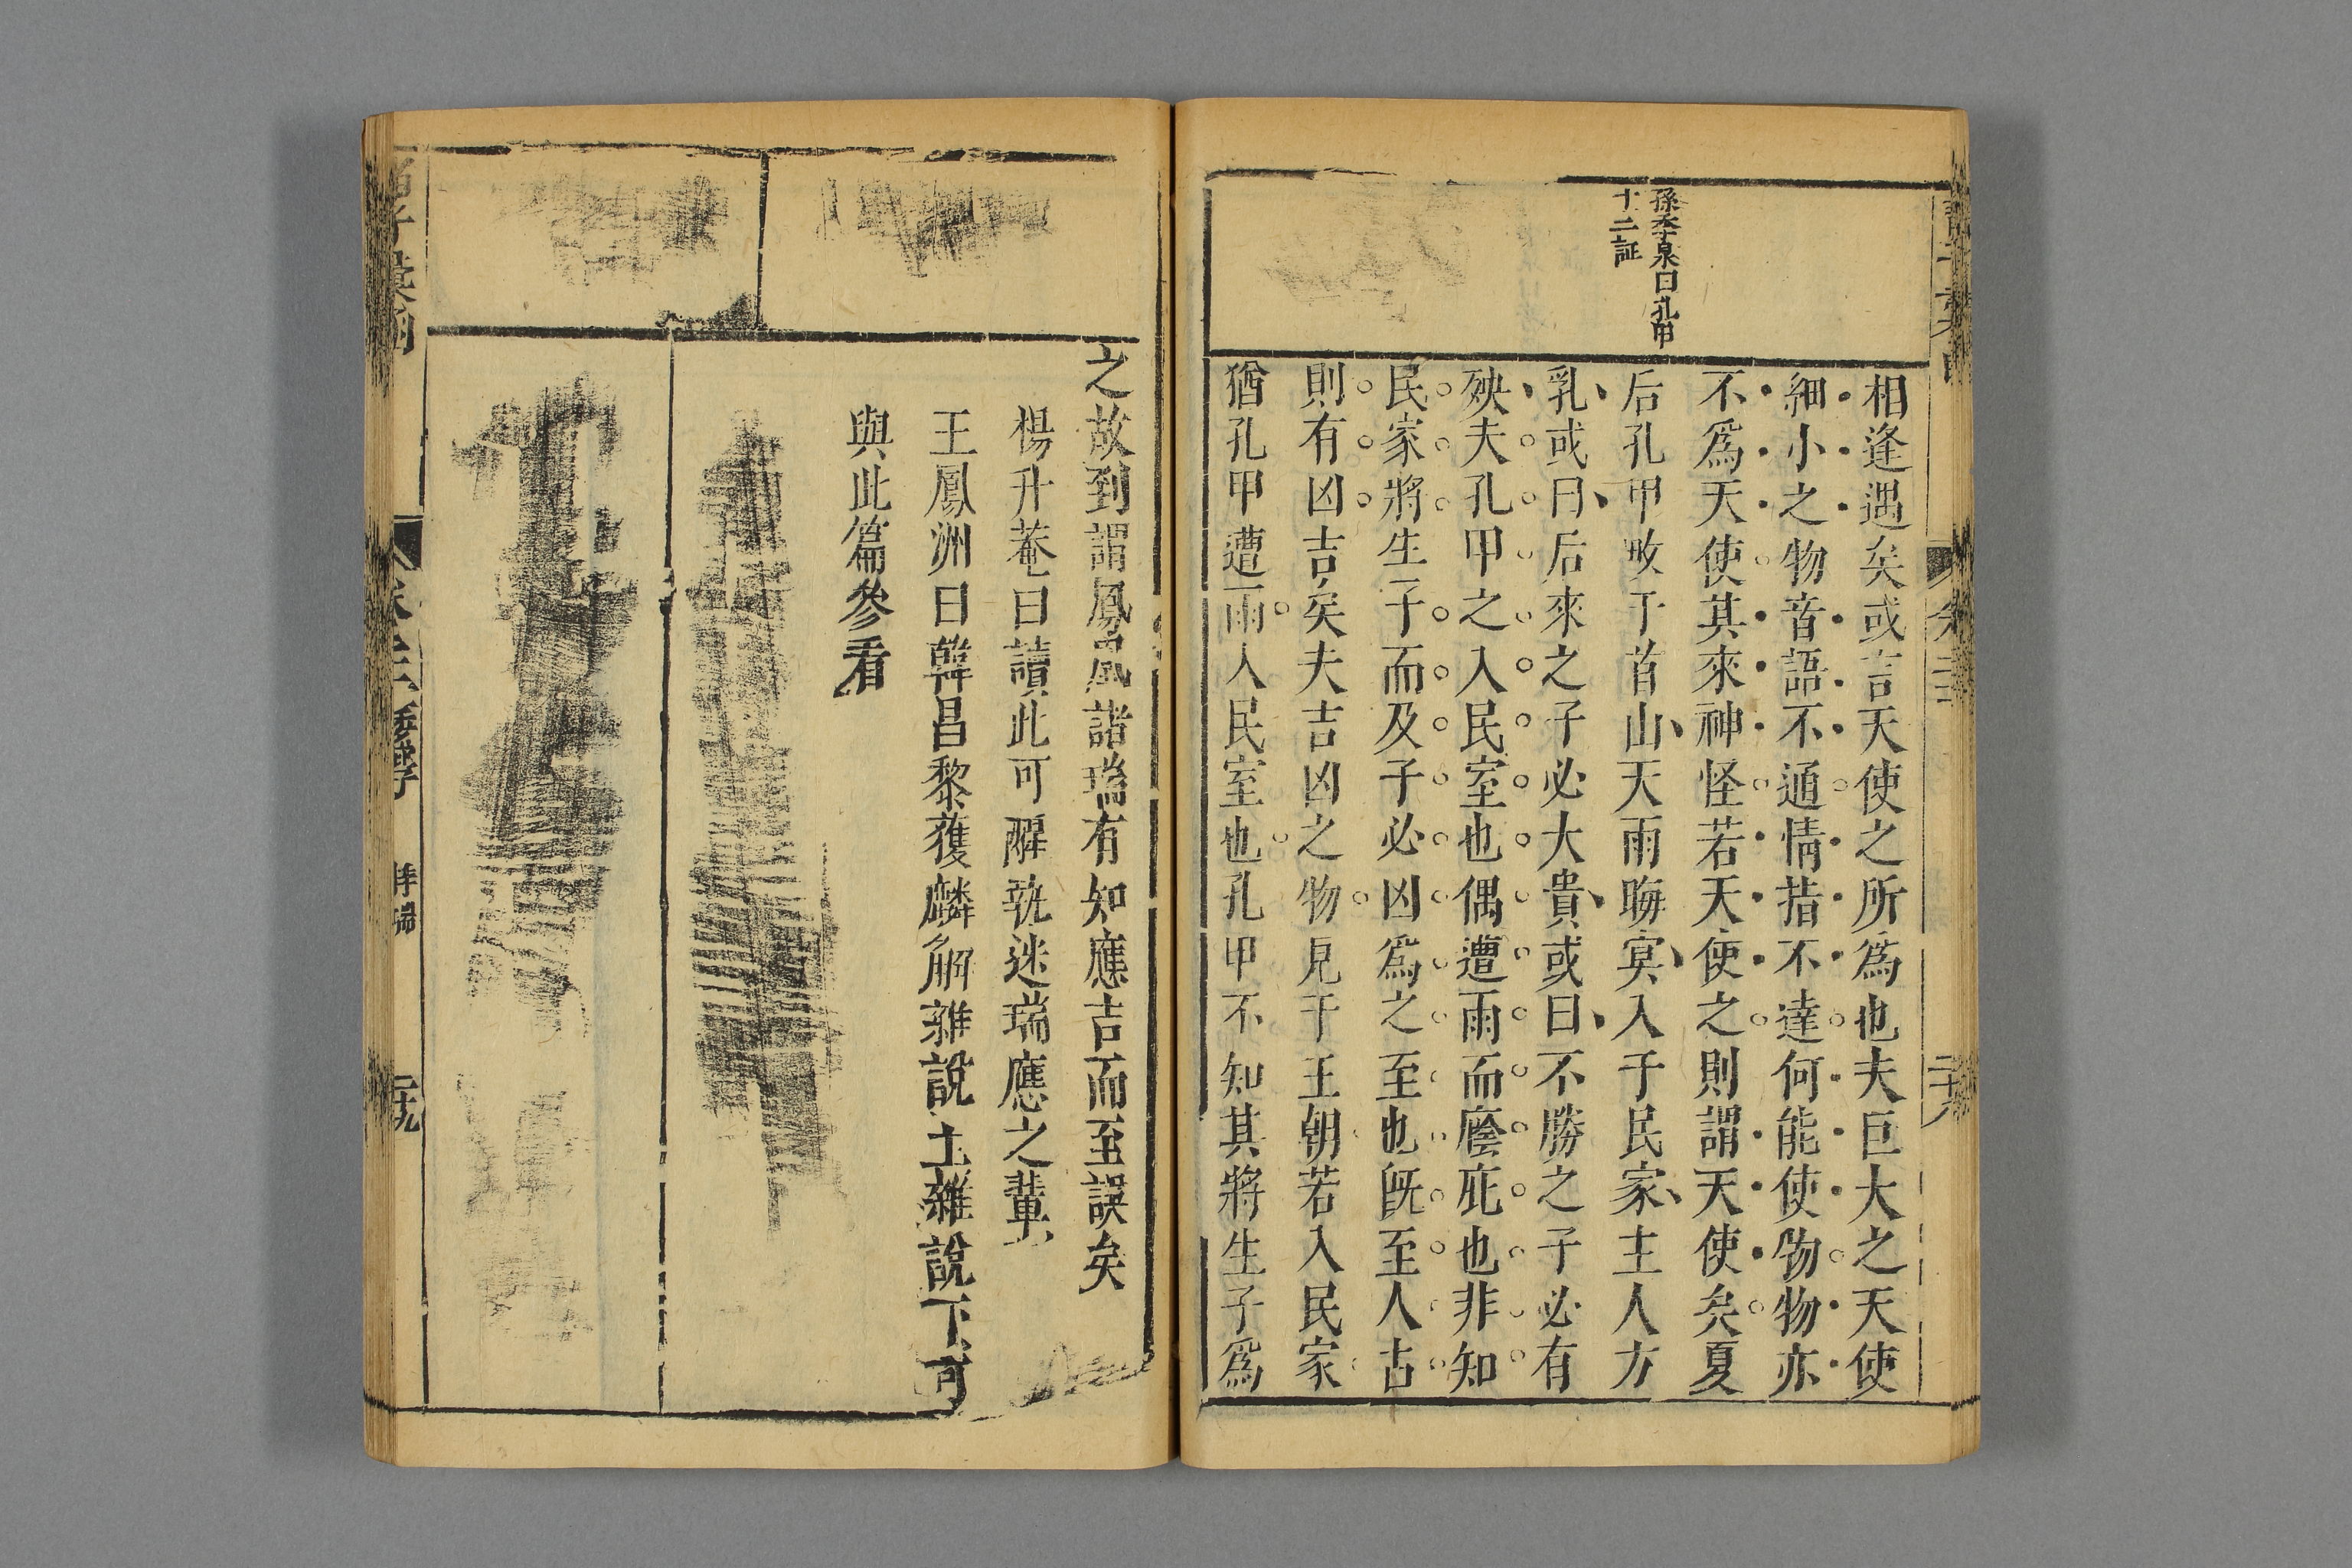 孫季泉曰孔甲
十二証
相逢遇矣或言天使之所爲也夫巨大之天使
細小之物音語不通情指不達何能使物物亦
不爲天使其來神怪若天使之則謂天使矣夏
后孔甲畋于首山天雨晦冥入于民家主人方
乳或曰后來之子必大貴或曰不勝之子必有
殃夫孔甲之入民室也偶遭雨而廕庇也非知
民家將生子而及子必凶爲之至也旣至人占
則有凶吉矣夫吉凶之物見于王朝若入民家
猶孔甲遭雨入民室也孔甲不知其將生子爲
之故到謂鳳凰諸瑞有知應吉而至誤矣
楊升菴曰讀此可醒執迷瑞應之輩
王鳳洲曰韓昌黎獲麟解雜說上雜說下可
與此篇參看